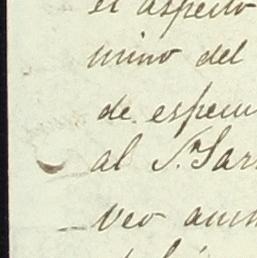 el aspecto
mino del
de espec
al Sr. Sar
veo aun